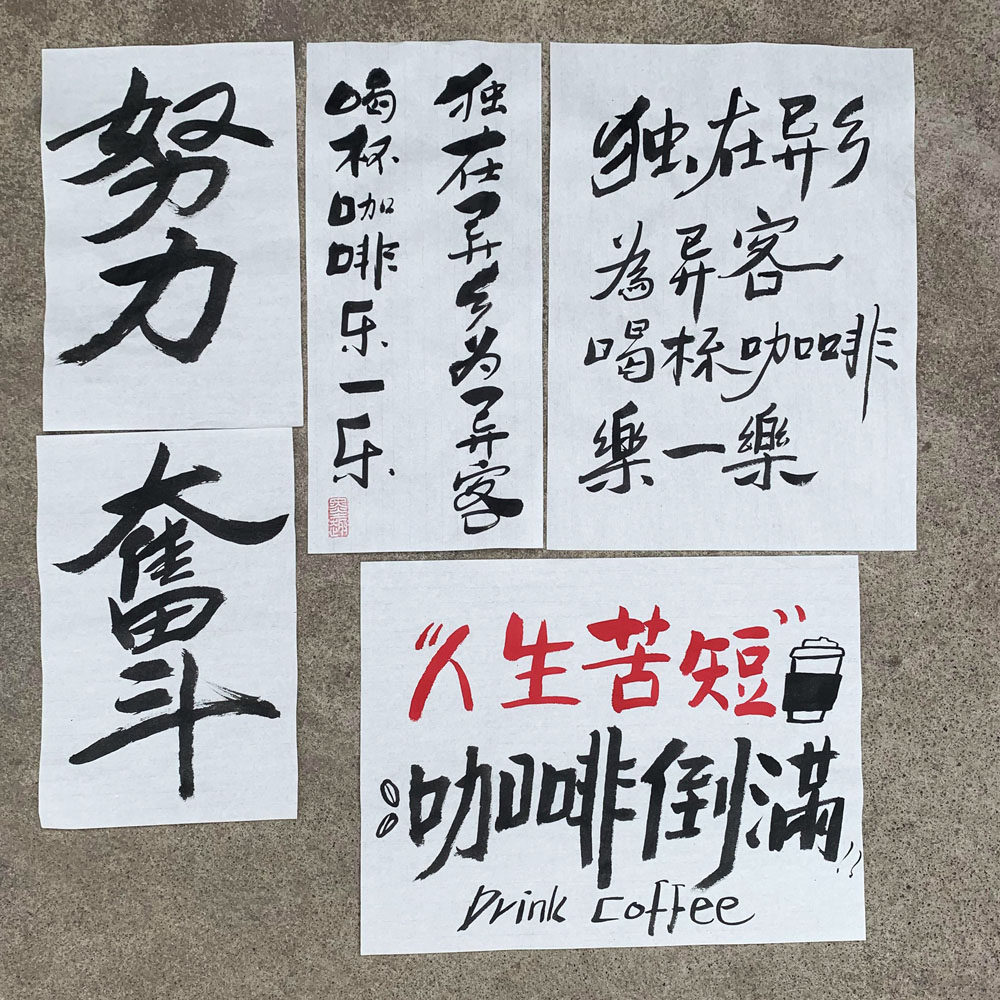 努力
奮斗
独在异乡为异客
喝杯咖啡乐一乐
独在异乡
為异客
喝杯咖啡
樂一樂
“人生苦短”
咖啡倒滿!!
Drink coffee